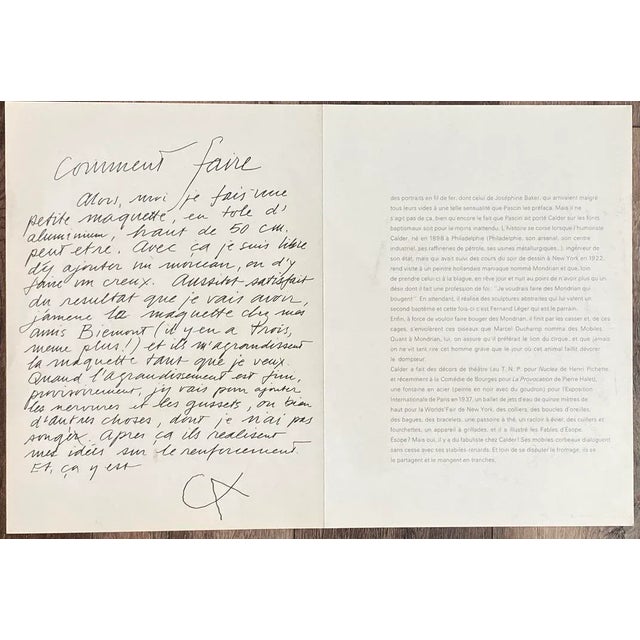 comment faire
Alors, moi je fais une
petite maquette, en tole d'
aluminium, haut de 50 cm.
peut etre. Avec ça je suis libre
d'y ajouter un morceau, ou d'y
faire un creux. Aussitot satisfait
du resultat que je vais avoir,
j'amene la maquette chez mes
amis Biemont (il y en a trois,
meme plus!) et ils m'agrandissent
la maquette tant que je veux.
Quand l'agrandissement est fini,
provisoirement, j'y vais pour ajouter
les nervures et les gussets, ou bien
d'autres choses, dont je n'ai pas
songer. Apres ça ils realisent
mes idées sur le renforcement.
Et, ça y est
CA
des portraits en fil de fer, dont celui de Joséphine Baker, qui arrivaient malgré
tous leurs vides à une telle sensualité que Pascin les préfaça. Mais il ne
s'agit pas de ça, bien qu'encore le fait que Pascin ait porté Calder sur les fonts
baptismaux soit pour le moins inattendu. L'histoire se corse lorsque l'humoriste
Calder, né en 1898 à Philadelphie (Philadelphie, son arsenal, son centre
industriel, ses raffineries de pétrole, ses usines métallurgiques...), ingénieur de
son état, mais qui avait suivi des cours du soir de dessin à New York en 1922,
rend visite à un peintre hollandais maniaque nommé Mondrian et que, loin
de prendre celui-ci à la blague, en rêve jour et nuit au point de n'avoir plus qu'un
désir dont il fait une profession de foi : "Je voudrais faire des Mondrian qui
bougent". En attendant, il réalise des sculptures abstraites qui lui valent un
second baptême et cette fois-ci c'est Fernand Léger qui est le parrain.
Enfin, à force de vouloir faire bouger des Mondrian, il finit par les casser et, de ces
cages, s'envolèrent ces oiseaux que Marcel Duchamp nomma des Mobiles.
Quant à Mondrian, lui, on assure qu'il préférait le lion du cirque, et que jamais
on ne vit tant rire cet homme grave que le jour où cet animal faillit dévorer
le dompteur.
Calder a fait des décors de théâtre (au T.N.P. pour Nucléa de Henri Pichette
et récemment à la Comédie de Bourges pour La Provocation de Pierre Halet),
une fontaine en acier (peinte en noir avec du goudron) pour l'Exposition
Internationale de Paris en 1937, un ballet de jets d'eau de quinze mètres de
haut pour la Worlds'Fair de New York, des colliers, des boucles d'oreilles,
des bagues, des bracelets, une passoire à thé, un racloir à évier, des cuillers et
fourchettes, un appareil à grillades, et il a illustré les Fables d'Esope.
Esope? Mais oui, il y a du fabuliste chez Calder! Ses mobiles corbeaux dialoguent
sans cesse avec ses stabiles-renards. Et loin de se disputer le fromage, ils se
le partagent et le mangent en tranches.